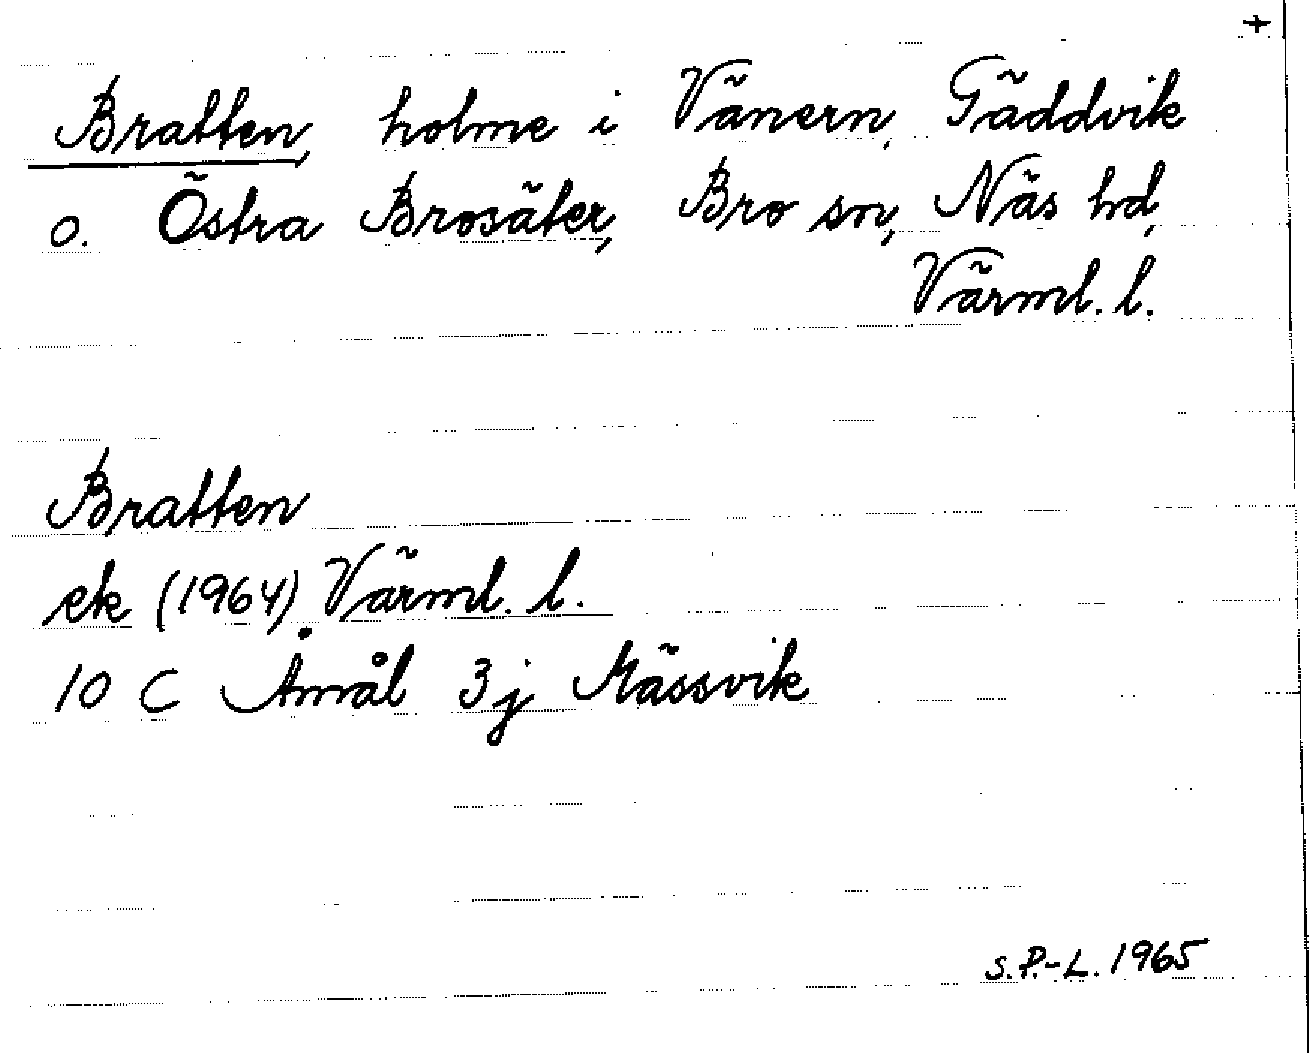 +
Bratten, holme i Vänern, Gäddvik
o. Östra Brosäter, Bro sn, Näs hd,
Värml. l.
Bratten
ek (1964) Värml. l.
10 C Åmål 3j Mässvik
S.P.-L. 1965